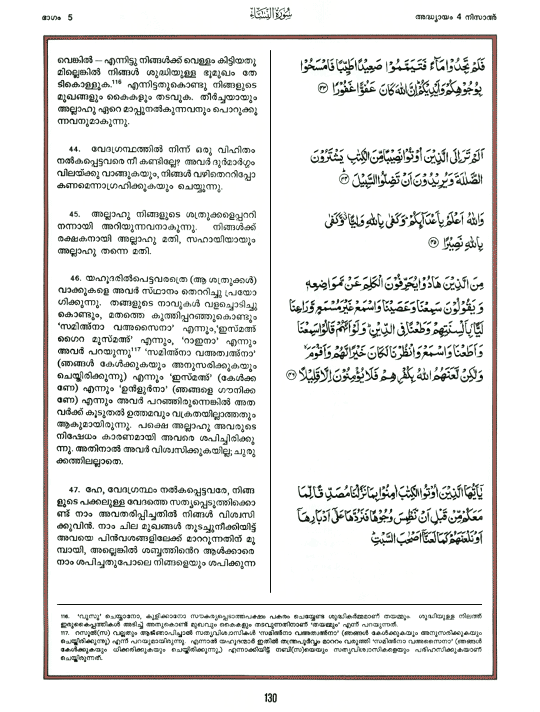 ഭാഗം 5
سُورَةُ النِّسَاء
അദ്ധ്യായം 4 നിസാഅ്
വെങ്കിൽ — എന്നിട്ടു നിങ്ങൾക്ക് വെള്ളം കിട്ടിയതു
മില്ലെങ്കിൽ നിങ്ങൾ ശുദ്ധിയുള്ള ഭൂമുഖം തേ
ടിക്കൊള്ളുക.116 എന്നിട്ടതുകൊണ്ടു നിങ്ങളുടെ
മുഖങ്ങളും കൈകളും തടവുക. തീർച്ചയായും
അല്ലാഹു ഏറെ മാപ്പുനൽകുന്നവനും പൊറുക്കു
ന്നവനുമാകുന്നു.
44. വേദഗ്രന്ഥത്തിൽ നിന്ന് ഒരു വിഹിതം
നൽകപ്പെട്ടവരെ നീ കണ്ടില്ലേ? അവർ ദുർമാർഗ്ഗം
വിലയ്ക്കു വാങ്ങുകയും, നിങ്ങൾ വഴിതെററിപ്പോ
കണമെന്നാഗ്രഹിക്കുകയും ചെയ്യുന്നു.
45. അല്ലാഹു നിങ്ങളുടെ ശത്രുക്കളെപ്പററി
നന്നായി അറിയുന്നവനാകുന്നു. നിങ്ങൾക്ക്
രക്ഷകനായി അല്ലാഹു മതി, സഹായിയായും
അല്ലാഹു തന്നെ മതി.
46. യഹൂദരിൽപെട്ടവരത്രെ (ആ ശത്രുക്കൾ)
വാക്കുകളെ അവർ സ്ഥാനം തെററിച്ചു പ്രയോ
ഗിക്കുന്നു. തങ്ങളുടെ നാവുകൾ വളച്ചൊടിച്ചു
കൊണ്ടും, മതത്തെ കുത്തിപ്പറഞ്ഞുകൊണ്ടും
'സമിഅ്നാ വഅസൈനാ' എന്നും, 'ഇസ്മഅ്
ഗൈറ മുസ്മഅ്' എന്നും, 'റാഇനാ' എന്നും
അവർ പറയുന്നു117 'സമിഅ്നാ വഅത്വഅ്നാ'
(ഞങ്ങൾ കേൾക്കുകയും അനുസരിക്കുകയും
ചെയ്തിരിക്കുന്നു) എന്നും 'ഇസ്മഅ്' (കേൾക്ക
ണേ) എന്നും 'ഉൻളുർനാ' (ഞങ്ങളെ ഗൗനിക്ക
ണേ) എന്നും അവർ പറഞ്ഞിരുന്നെങ്കിൽ അത
വർക്ക് കൂടുതൽ ഉത്തമവും വക്രതയില്ലാത്തതും
ആകുമായിരുന്നു. പക്ഷെ അല്ലാഹു അവരുടെ
നിഷേധം കാരണമായി അവരെ ശപിച്ചിരിക്കു
ന്നു. അതിനാൽ അവർ വിശ്വസിക്കുകയില്ല; ചുരു
ക്കത്തിലല്ലാതെ.
47. ഹേ, വേദഗ്രന്ഥം നൽകപ്പെട്ടവരേ, നിങ്ങ
ളുടെ പക്കലുള്ള വേദത്തെ സത്യപ്പെടുത്തിക്കൊ
ണ്ട് നാം അവതരിപ്പിച്ചതിൽ നിങ്ങൾ വിശ്വസി
ക്കുവിൻ. നാം ചില മുഖങ്ങൾ തുടച്ചുനീക്കിയിട്ട്
അവയെ പിൻവശങ്ങളിലേക്ക് മാററുന്നതിന് മു
മ്പായി, അല്ലെങ്കിൽ ശബ്ബത്തിൻെറ ആൾക്കാരെ
നാം ശപിച്ചതുപോലെ നിങ്ങളെയും ശപിക്കുന്ന
فَلَمْ تَجِدُوا مَاءً فَتَيَمَّمُوا صَعِيدًا طَيِّبًا فَامْسَحُوا
بِوُجُوهِكُمْ وَأَيْدِيكُمْ إِنَّ اللَّهَ كَانَ عَفُوًّا غَفُورًا ﴿٤٣﴾
أَلَمْ تَرَ إِلَى الَّذِينَ أُوتُوا نَصِيبًا مِنَ الْكِتَابِ يَشْتَرُونَ
الضَّلَالَةَ وَيُرِيدُونَ أَنْ تَضِلُّوا السَّبِيلَ ﴿٤٤﴾
وَاللَّهُ أَعْلَمُ بِأَعْدَائِكُمْ وَكَفَى بِاللَّهِ وَلِيًّا وَكَفَى
بِاللَّهِ نَصِيرًا ﴿٤٥﴾
مِنَ الَّذِينَ هَادُوا يُحَرِّفُونَ الْكَلِمَ عَنْ مَوَاضِعِهِ
وَيَقُولُونَ سَمِعْنَا وَعَصَيْنَا وَاسْمَعْ غَيْرَ مُسْمَعٍ وَرَاعِنَا
لَيًّا بِأَلْسِنَتِهِمْ وَطَعْنًا فِي الدِّينِ وَلَوْ أَنَّهُمْ قَالُوا سَمِعْنَا
وَأَطَعْنَا وَاسْمَعْ وَانْظُرْنَا لَكَانَ خَيْرًا لَهُمْ وَأَقْوَمَ
وَلَكِنْ لَعَنَهُمُ اللَّهُ بِكُفْرِهِمْ فَلَا يُؤْمِنُونَ إِلَّا قَلِيلًا ﴿٤٦﴾
يَا أَيُّهَا الَّذِينَ أُوتُوا الْكِتَابَ آمِنُوا بِمَا نَزَّلْنَا مُصَدِّقًا لِمَا
مَعَكُمْ مِنْ قَبْلِ أَنْ نَطْمِسَ وُجُوهًا فَنَرُدَّهَا عَلَى أَدْبَارِهَا
أَوْ نَلْعَنَهُمْ كَمَا لَعَنَّا أَصْحَابَ السَّبْتِ
116. 'വുസൂ' ചെയ്യാനോ, കുളിക്കാനോ സൗകര്യപ്പെടാത്തപക്ഷം പകരം ചെയ്യേണ്ട ശുദ്ധികർമ്മമാണ് തയമ്മും. ശുദ്ധിയുള്ള നിലത്ത്
ഇരുകൈപ്പത്തികൾ അടിച്ച് അതുകൊണ്ട് മുഖവും കൈകളും തടവുന്നതിനാണ് 'തയമ്മും' എന്ന് പറയുന്നത്.
117. റസൂൽ(സ) വല്ലതും ആജ്ഞാപിച്ചാൽ സത്യവിശ്വാസികൾ 'സമിഅ്നാ വഅത്വഅ്നാ' (ഞങ്ങൾ കേൾക്കുകയും അനുസരിക്കുകയും
ചെയ്തിരിക്കുന്നു) എന്ന് പറയുമായിരുന്നു. എന്നാൽ യഹൂദന്മാർ ഇതിൽ തന്ത്രപൂർവ്വം മാററം വരുത്തി 'സമിഅ്നാ വഅസൈനാ' (ഞങ്ങൾ
കേൾക്കുകയും ധിക്കരിക്കുകയും ചെയ്തിരിക്കുന്നു,) എന്നാക്കിയിട്ട് നബി(സ)യെയും സത്യവിശ്വാസികളെയും പരിഹസിക്കുകയാണ്
ചെയ്തിരുന്നത്.
130